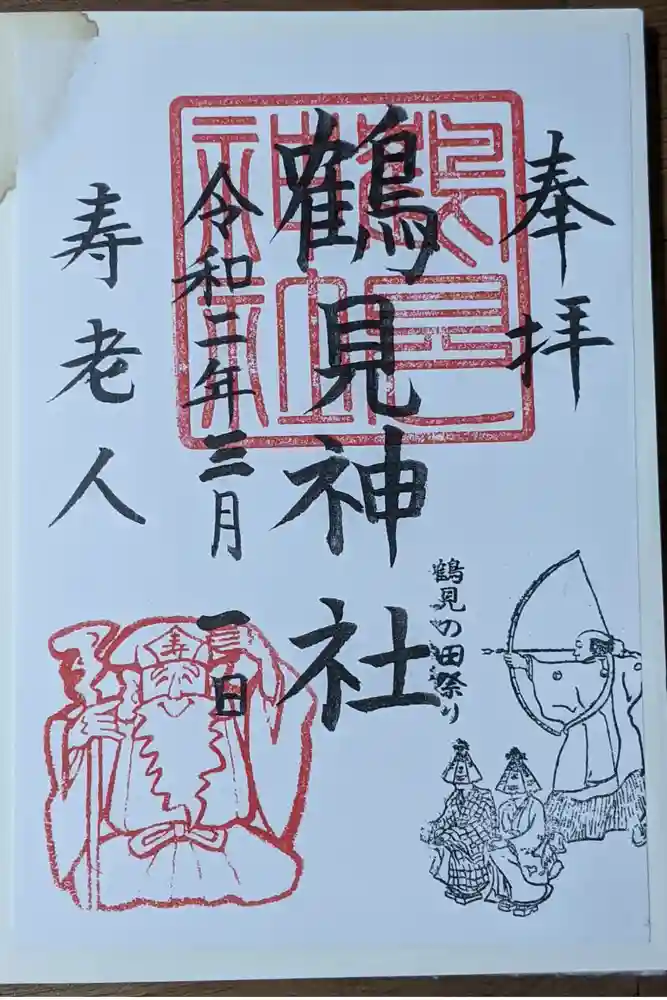 奉拝
鶴見の田祭り
鶴見神社
鶴見神社
令和二年三月一日
寿老人
寿